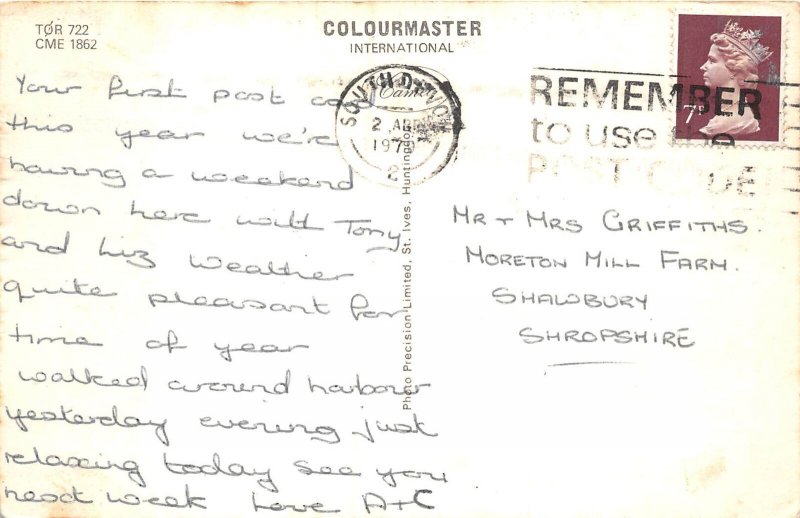 TOR 722
CME 1862
COLOURMASTER
INTERNATIONAL
Your first post card
this year we're
having a weekend
down here with Tony
and Liz Weather
quite pleasant for
time of year
walked around harbour
yesterday evening just
relaxing today see you
next week Love A+C
Photo Precision Limited, St. Ives, Huntingdon
SOUTH DEVON
2 APR
197
2
REMEMBER
to use the
POST CODE
7P
MR + MRS GRIFFITHS.
MORETON MILL FARM.
SHAWBURY
SHROPSHIRE